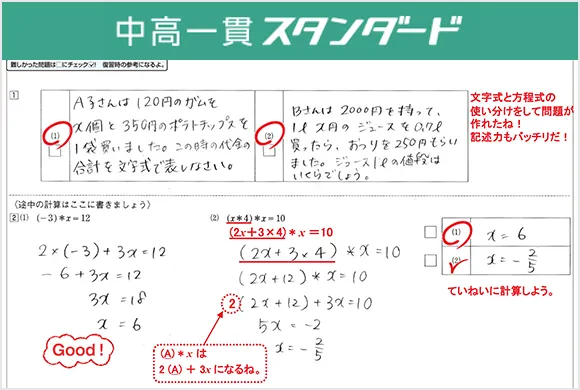 中高一貫スタンダード
難しかった問題は□にチェック✓! 復習時の参考になるよ。
1
(1)
A子さんは120円のガムを
x個と350円のポテトチップスを
1袋買いました。この時の代金の
合計を文字式で表しなさい。
(2)
Bさんは2000円を持って、
1ℓ x円のジュースを0.7ℓ
買ったら、おつりを250円もらい
ました。ジュース1ℓの値段は
いくらでしょう。
文字式と方程式の
使い分けをして問題が
作れたね!
記述力もバッチリだ!
(途中の計算はここに書きましょう)
2 (1) (−3)*x=12
2×(−3)+3x=12
−6+3x=12
3x=18
x=6
Good!
(2) (x*4)*x=10
(2x+3×4)*x=10
(2x+3×4)*x=10
(2x+12)*x=10
2(2x+12)+3x=10
5x=−2
x=−2/5
(A)*xは
2(A)+3xになるね。
(1) x=6
(2) x=−2/5
ていねいに計算しよう。